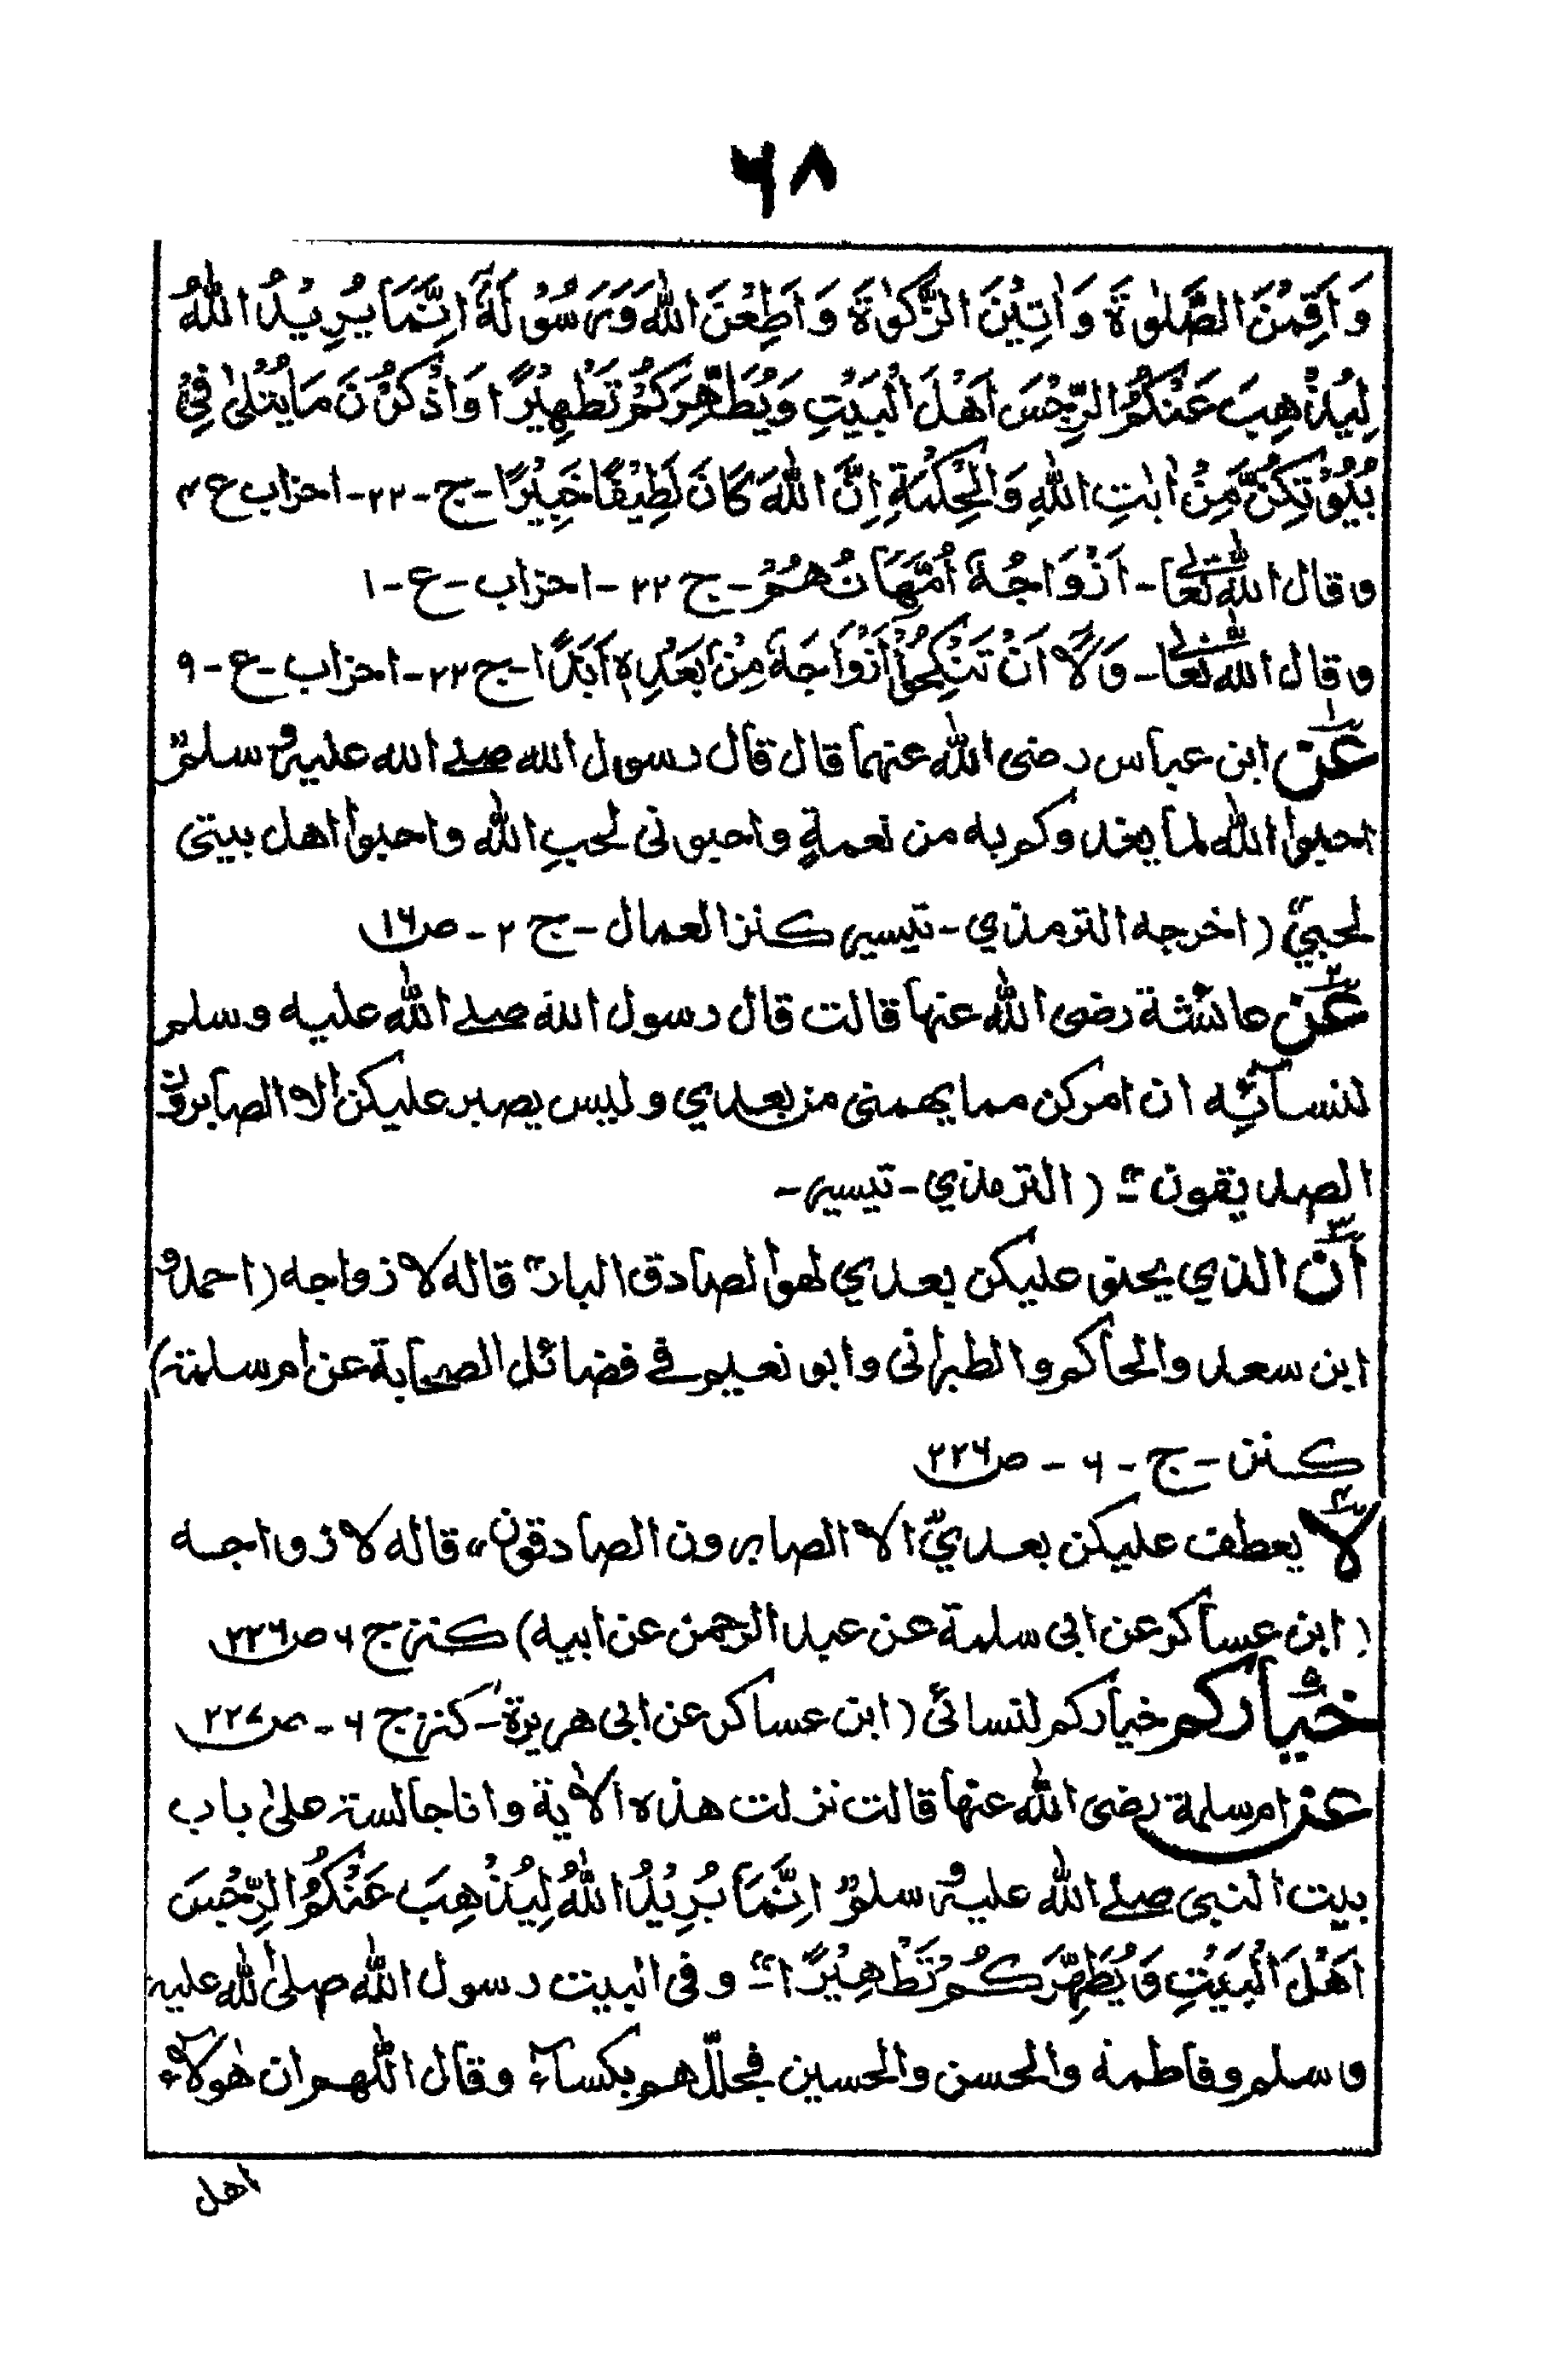 ۶۸
وَاَقِمْنَ الصَّلٰوةَ وَاٰتِيْنَ الزَّكٰوةَ وَاَطِعْنَ اللّٰهَ وَرَسُوْلَهٗ اِنَّمَا يُرِيْدُ اللّٰهُ
لِيُذْهِبَ عَنْكُمُ الرِّجْسَ اَهْلَ الْبَيْتِ وَيُطَهِّرَكُمْ تَطْهِيْرًا وَاذْكُرْنَ مَا يُتْلٰى فِيْ
بُيُوْتِكُنَّ مِنْ اٰيٰتِ اللّٰهِ وَالْحِكْمَةِ اِنَّ اللّٰهَ كَانَ لَطِيْفًا خَبِيْرًا - ج - ۲۲ - احزاب ع ۴
و قال الله تعالى - اَزْوَاجُهٗ اُمَّهَاتُهُمْ - ج ۲۲ - احزاب - ع - ۱
و قال الله تعالى - وَلَا اَنْ تَنْكِحُوْا اَزْوَاجَهٗ مِنْ بَعْدِهٖ اَبَدًا - ج ۲۲ - احزاب - ع - ۹
۱ عن ابن عباس رضى اللّٰه عنهما قال قال رسول الله صلے الله عليه وسلم"
احبوا اللّٰه لما يغدوكم به من نعمةٍ واحبونى لحبِ اللّٰه واحبوا اهل بيتى
لحبيّ" (اخرجه الترمذي - تيسير كنز العمال - ج ۲ - ص ۱۶
۲ عن عائشة رضى اللّٰه عنها قالت قال رسول الله صلے اللّٰه عليه وسلم
لنسآئِه ان امركن مما يهمنى من بعدي وليس يصبر عليكن الا الصابرون
الصديقون" - (الترمذي - تيسير -
۳ ان الذي يحنو عليكن بعدي لهو الصادق البار" قاله لازواجه (احمد و
ابن سعد والحاكم والطبرانى وابو نعيم فے فضائل الصحابة عن ام سلمة)
كنز - ج - ۶ - ص ۲۲۶
۴ لا يعطف عليكن بعديّ الا الصابرون الصادقون" قاله لازواجه
(ابن عساكر عن ابى سلمة عن عبد الرحمن عن ابيه) كنز ج ۶ ص ۲۲۶
۵ خياركم خياركم لنسائى (ابن عساكر عن ابى هريرة - كنز ج ۶ - ص ۲۲۷
عن ام سلمة رضى اللّٰه عنها قالت نزلت هذه الاٰية وانا جالسة علىٰ باب
بيت النبى صلے اللّٰه عليه وسلم" اِنَّمَا يُرِيْدُ اللّٰهُ لِيُذْهِبَ عَنْكُمُ الرِّجْسَ
اَهْلَ الْبَيْتِ وَيُطَهِّرَكُمْ تَطْهِيْرًا" - وفى البيت رسول اللّٰه صلىٰ للّٰه عليه
وسلم وفاطمة والحسن والحسين فجلّلهم بكسآء وقال اللّٰهم ان هٰولآء
اهل